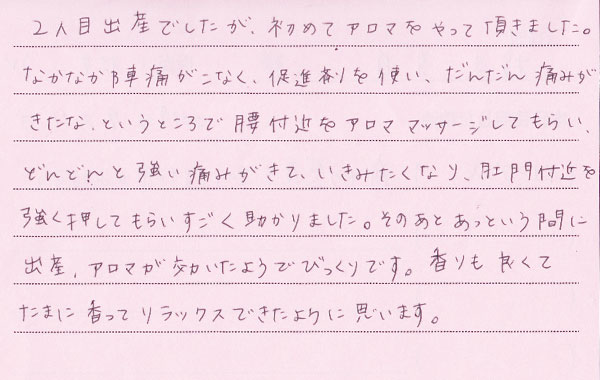 2人目出産でしたが、初めてアロマをやって頂きました。
なかなか陣痛がこなく、促進剤を使い、だんだん痛みが
きたな、というところで腰付近をアロママッサージしてもらい、
どんどんと強い痛みがきて、いきみたくなり、肛門付近を
強く押してもらいすごく助かりました。そのあとあっという間に
出産、アロマが効いたようでびっくりです。香りも良くて
たまに香ってリラックスできたように思います。